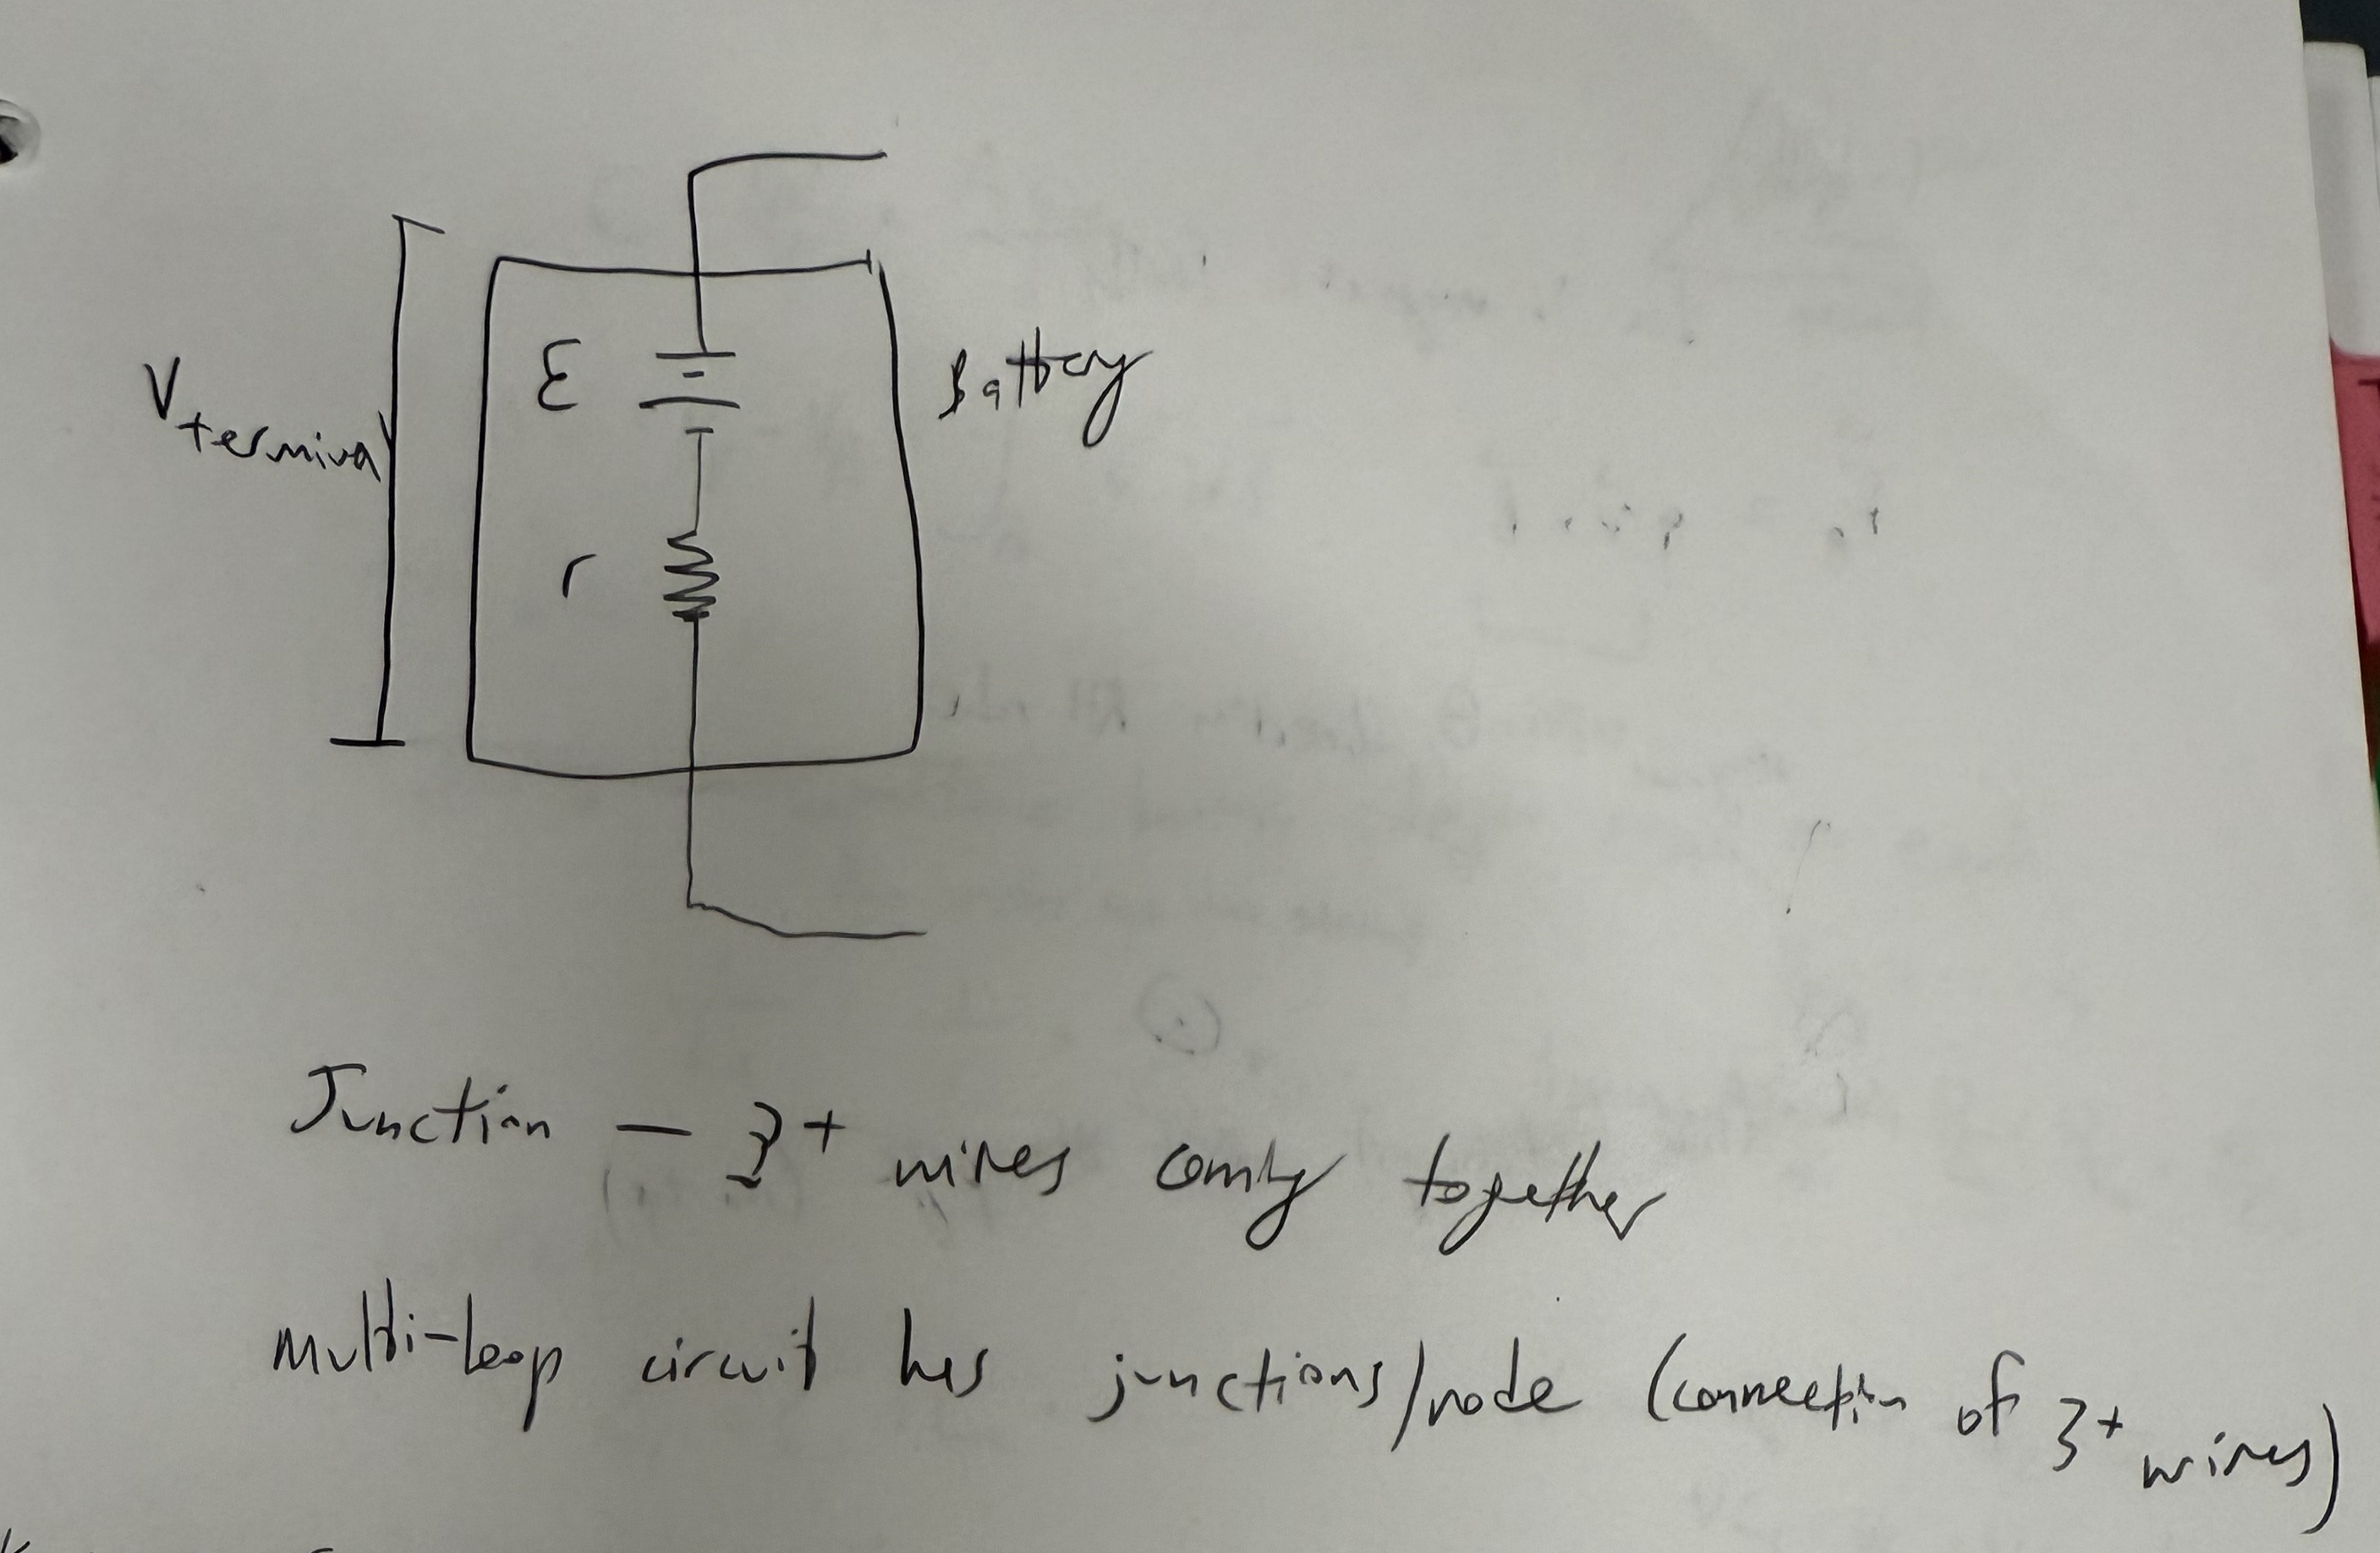 ε
Battery
Vterminal
r
Junction — 3+ wires coming together
multi-loop circuit has junctions/node (connection of 3+ wires)